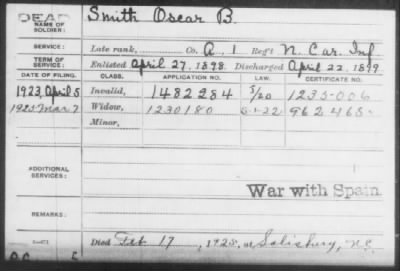 DEAD Smith Oscar B.
NAME OF SOLDIER:
SERVICE: Late rank, Co. A, 1 Reg't N. Car. Inf
TERM OF SERVICE: Enlisted April 27, 1898. Discharged April 22, 1899
DATE OF FILING. CLASS. APPLICATION NO. LAW. CERTIFICATE NO.
1923, April 5 Invalid, 1482284 5/20 1235-006
Mar 7 Widow, 1230180 5-1-22 962465-
Minor,
ADDITIONAL SERVICES:
War with Spain.
REMARKS:
Died Feb 17, 1925, at Salisbury, N.C.